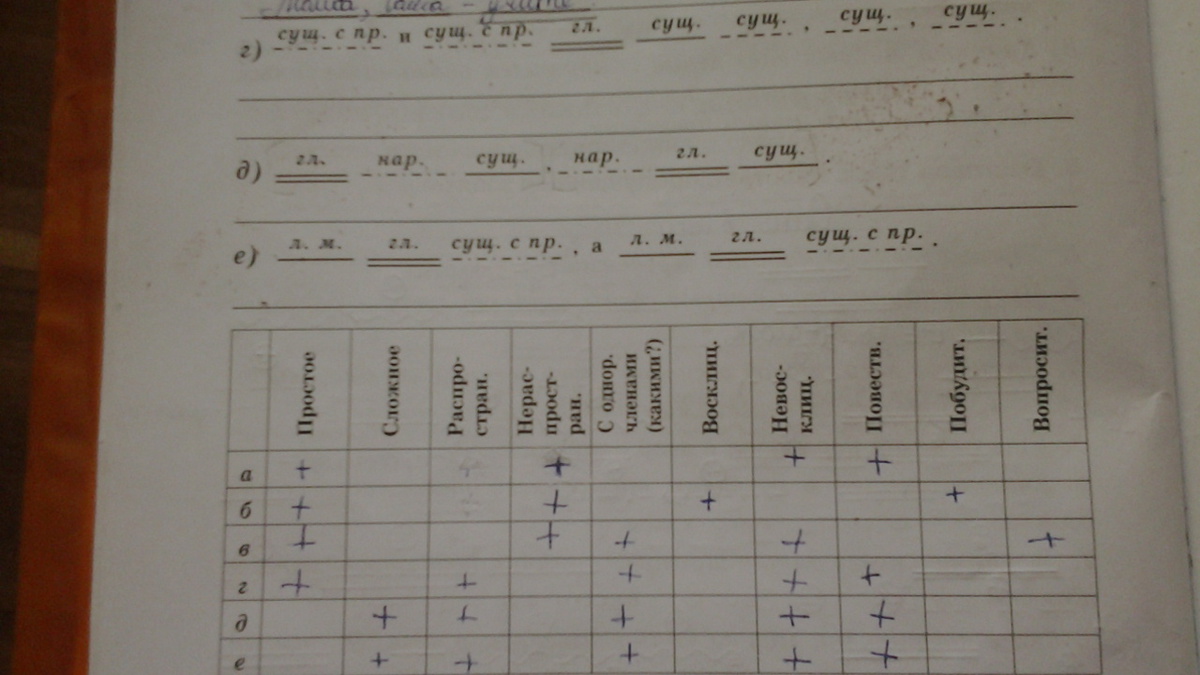 Маша, Саша –
г) сущ. с пр. и сущ. с пр. гл. сущ. сущ. , сущ. , сущ. .
д) гл. нар. сущ. , нар. гл. сущ. .
е) л. м. гл. сущ. с пр. , а л. м. гл. сущ. с пр. .
Простое Сложное Распро-стран. Нерас-прост-ран. С однор. членами (какими?) Восклиц. Невос-клиц. Повеств. Побудит. Вопросит.
а + + + + +
б + + + +
в + + + + +
г + + + + +
д + + + + +
е + + + + +